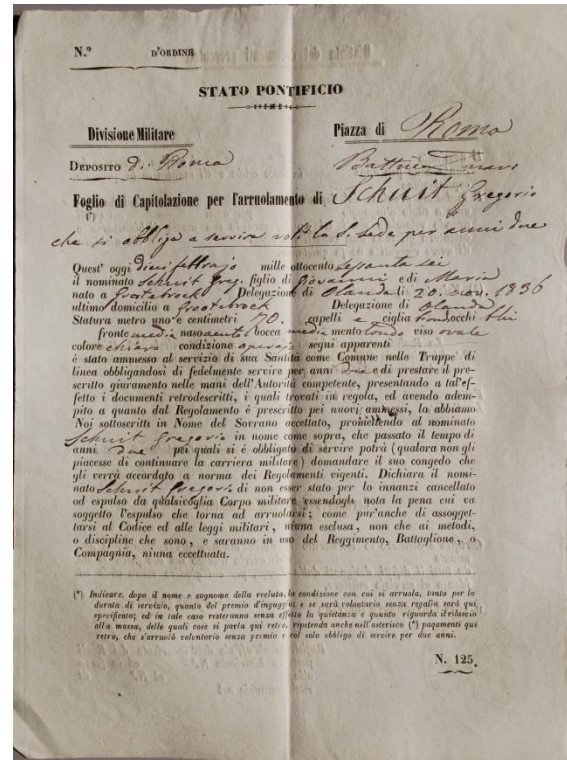 N.° D'ORDINE
STATO PONTIFICIO
Divisione Militare Piazza di Roma
DEPOSITO di Roma
Foglio di Capitolazione per l'arruolamento di Schuit Gregorio
(*)
che si obbliga a servire la S. Sede per anni due
Quest' oggi dieci febbrajo mille ottocento sessanta sei
il nominato Schuit Greg. figlio di Giovanni e di Maria
nato a Grootebrock Delegazione di Olanda li 20. nov. 1836
ultimo domicilio a Grootebrock Delegazione di Olanda
Statura metro uno e centimetri 70. capelli e ciglia biondi occhi blu
fronte media naso bocca media mento tondo viso ovale
colore chiaro condizione operajo segni apparenti
è stato ammesso al servizio di sua Santità come Comune nelle Truppe di
linea obbligandosi di fedelmente servire per anni due e di prestare il pre-
scritto giuramento nelle mani dell'Autorità competente, presentando a tal'ef-
fetto i documenti retrodescritti, i quali trovati in regola, ed avendo adem-
pito a quanto dal Regolamento è prescritto pei nuovi ammessi, la abbiamo
Noi sottoscritti in Nome del Sovrano accettato, promettendo al nominato
Schuit Gregorio in nome come sopra, che passato il tempo di
anni due pei quali si è obbligato di servire potrà (qualora non gli
piacesse di continuare la carriera militare) domandare il suo congedo che
gli verrà accordato a norma dei Regolamenti vigenti. Dichiara il nomi-
nato Schuit Gregorio di non esser stato per lo innanzi cancellato
od espulso da qualsivoglia Corpo militare essendogli nota la pena cui va
soggetto l'espulso che torna ad arruolarsi; come pur'anche di assogget-
tarsi al Codice ed alle leggi militari, niuna esclusa, non che ai metodi,
o discipline che sono, e saranno in uso del Reggimento, Battaglione, o
Compagnia, niuna eccettuata.
(*) Indicare, dopo il nome e cognome della recluta, la condizione con cui si arruola, tanto per la
durata di servizio, quanto del premio d'ingaggio; e se sarà volontario senza regalia sarà qui
specificato; ed in tale caso resteranno senza effetto la quietanza e quanto riguarda il rilascio
alla massa, delle quali cose si parla qui retro, ripetendo anche nell'asterisco (*) pagamenti qui
retro, che s'arruolò volontario senza premio e col solo obbligo di servire per due anni.
N. 125.